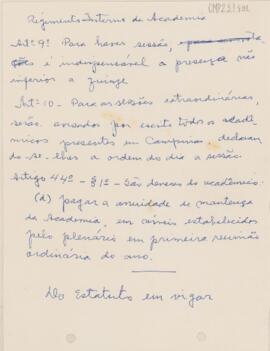 CMP2.2.1.9.01
Regimento Interno da Academia
Art. 9º Para haver sessão,
é indispensável a presença não
inferior a quinze.
Art.-10 - Para as sessões extraordinárias,
serão avisados por escrito todos os acadê-
micos presentes em Campinas, declaran-
do-se-lhes a ordem do dia a sessão.
Artigo 44º - § 1º - São deveres do acadêmico.
(d) pagar a anuidade de manten­ça
da Academia, em estabelecidos
pelo plenário em primeira reunião
ordinária do ano.
Do Estatuto em vigor